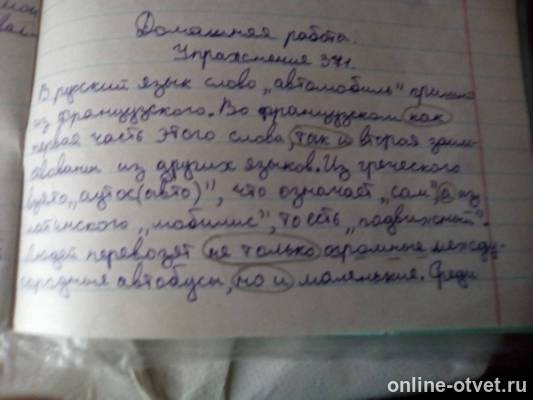 Домашняя работа.
Упражнение 371.
В русский язык слово „автомобиль" пришло
из французского. Во французском как
первая часть этого слова, так и вторая заим-
ствованы из других языков. Из греческого
взято „аутос (авто)", что означает „сам", а из
латинского „мобилис", то есть „подвижный".
Людей перевозят не только огромные между-
городние автобусы, но и маленькие. Среди
online-otvet.ru